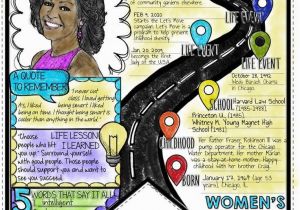 community gardens elsewhere.
FEB 9, 2010
Starts the Let's Move
campaign to help prevent
childhood obesity.
Jan 20, 2009
LIFE EVENT
LIFE EVENT
LIFE EVENT
October 18, 1992
Weds Barack Obama in
Chicago.
A QUOTE
TO REMEMBER
"I never cut
class. I
As, I liked
being smart. I liked
being on time. I thought being smart is
cooler than anything in the world."
SCHOOL
Harvard Law School
(1985-1988)
Princeton U. (1981-
1985)
Whitney M. Young Magnet High
School (1981)
Choose
people who
lift you
up. Surround yourself
with good people. Those
people should support
you and want to see
you succeed.
LIFE LESSON
I LEARNED
CHILDHOOD
Her Father Frasier Robinson III
was pump operator for the Chicago
Water Department. Her mother
Marian was a stay-at-home mother.
Happy childhood with her brother
BORN
January 17, 1964 (age 53)
Chicago, IL
5
WORDS THAT SAY IT ALL
intelligent
WOMEN'S